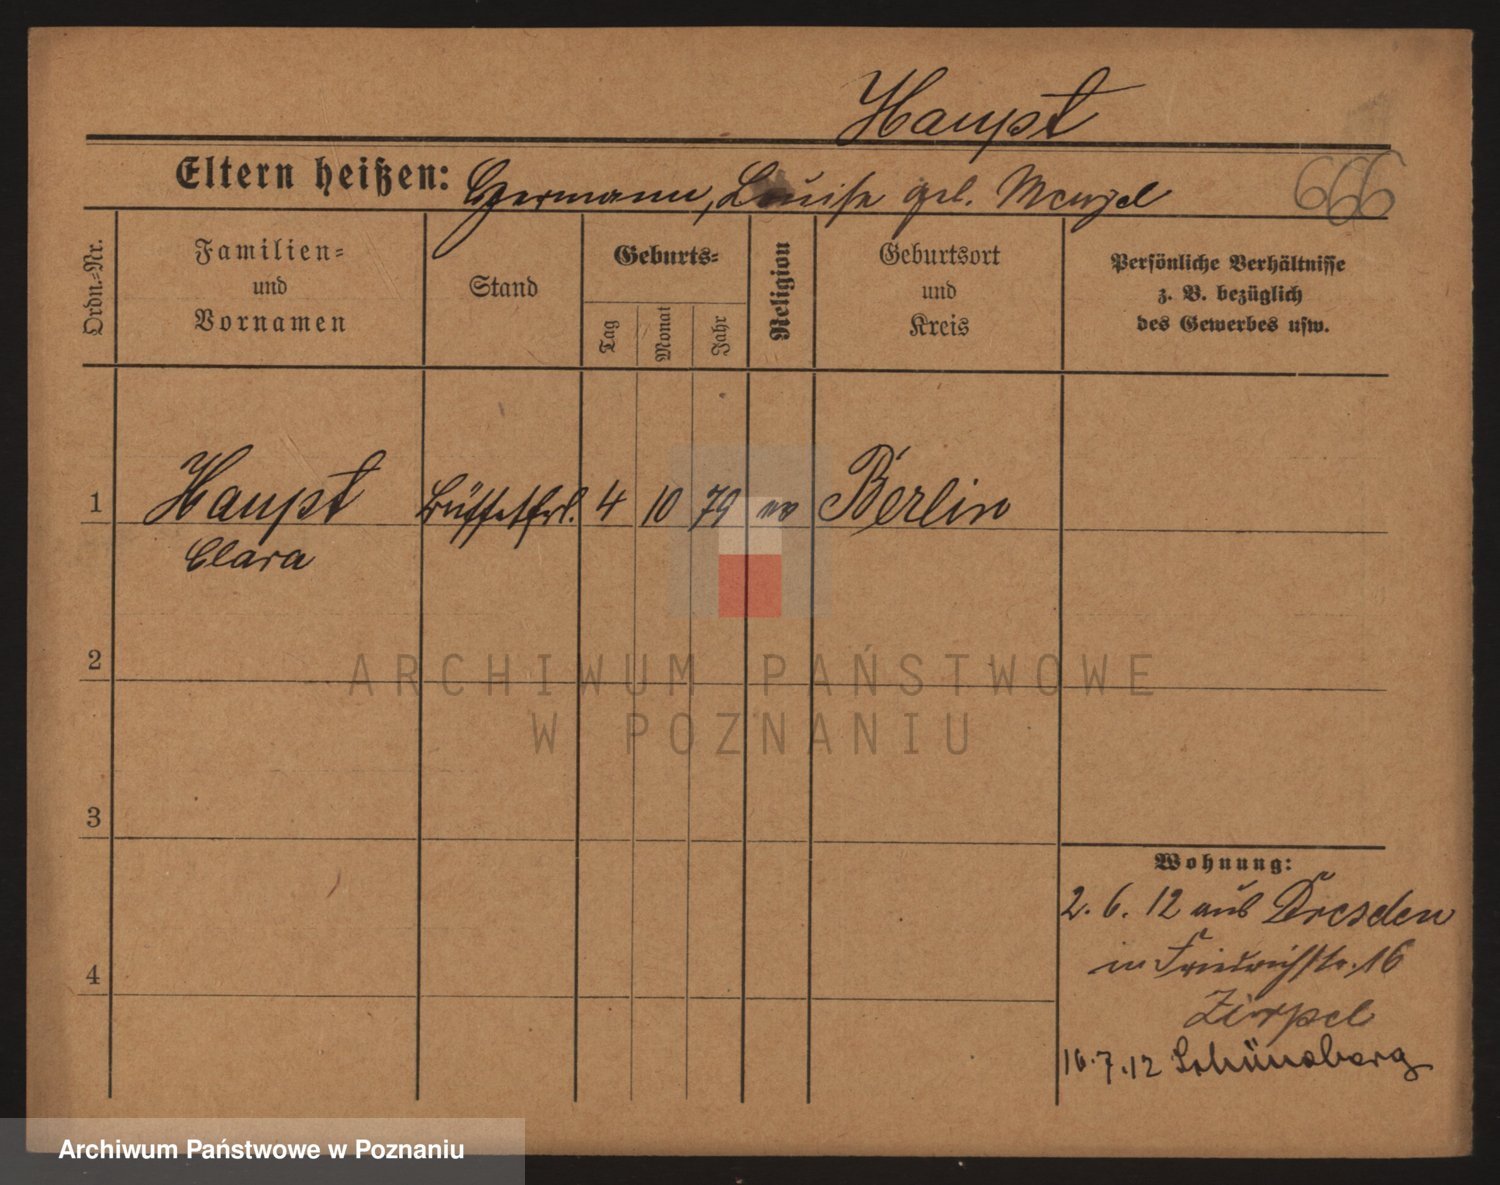 Haupt
Eltern heißen: Hermann, Louise geb. Menzel
666
Ordn.-Nr.
Familien=
und
Vornamen
Stand
Geburts=
Tag
Monat
Jahr
Religion
Geburtsort
und
Kreis
Persönliche Verhältnisse
z. B. bezüglich
des Gewerbes usw.
1 Haupt Büffetfrl. 4 10 79 ev Berlin
Clara
2
3
4
Wohnung:
2. 6. 12 aus Dresden
in Friedrichstr. 16
Zirpel
16.7.12 Schöneberg
ARCHIWUM PAŃSTWOWE
W POZNANIU
Archiwum Państwowe w Poznaniu